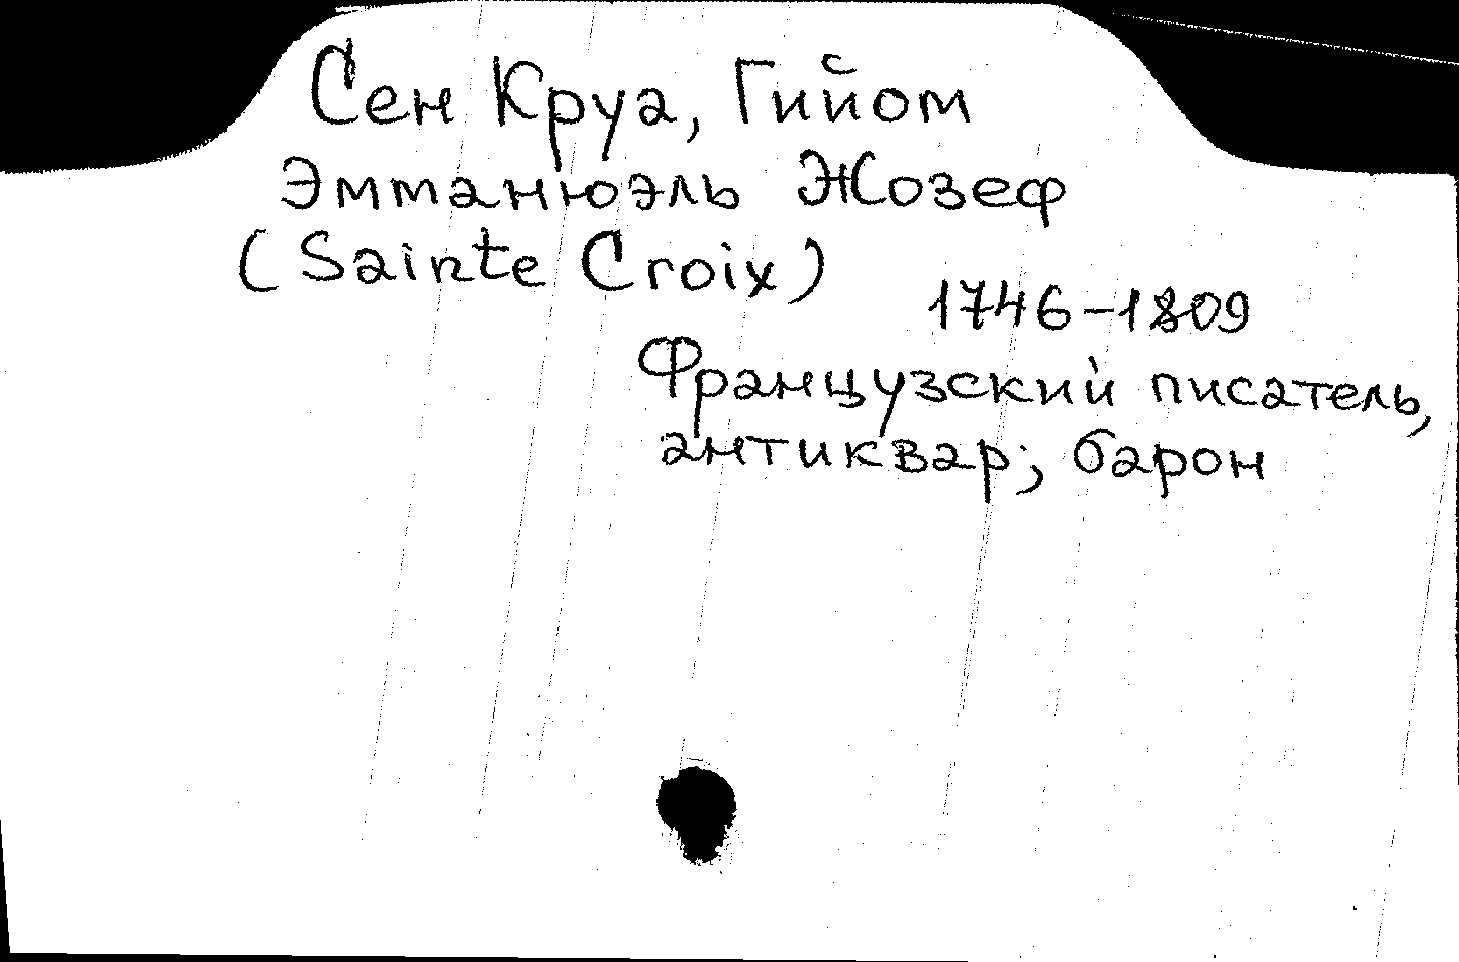 Сен Круа, Гийом
Эммануэль Жозеф
(Sainte Croix)
1746-1809
Французский писатель,
антиквар; барон